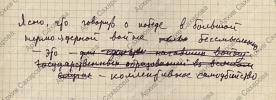 Ясно, что говорить о победе в большой
термоядерной войне бессмысленно
– это –
государственных образований
– коллективное самоубийство